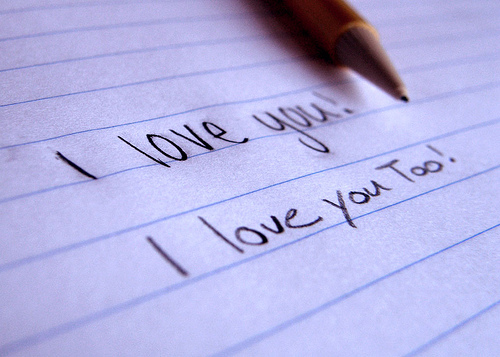 I love you!
I love you Too!